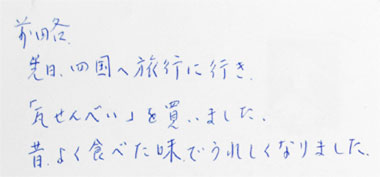 前略.
先日、四国へ旅行に行き、
「瓦せんべい」を買いました.
昔、よく食べた味でうれしくなりました.